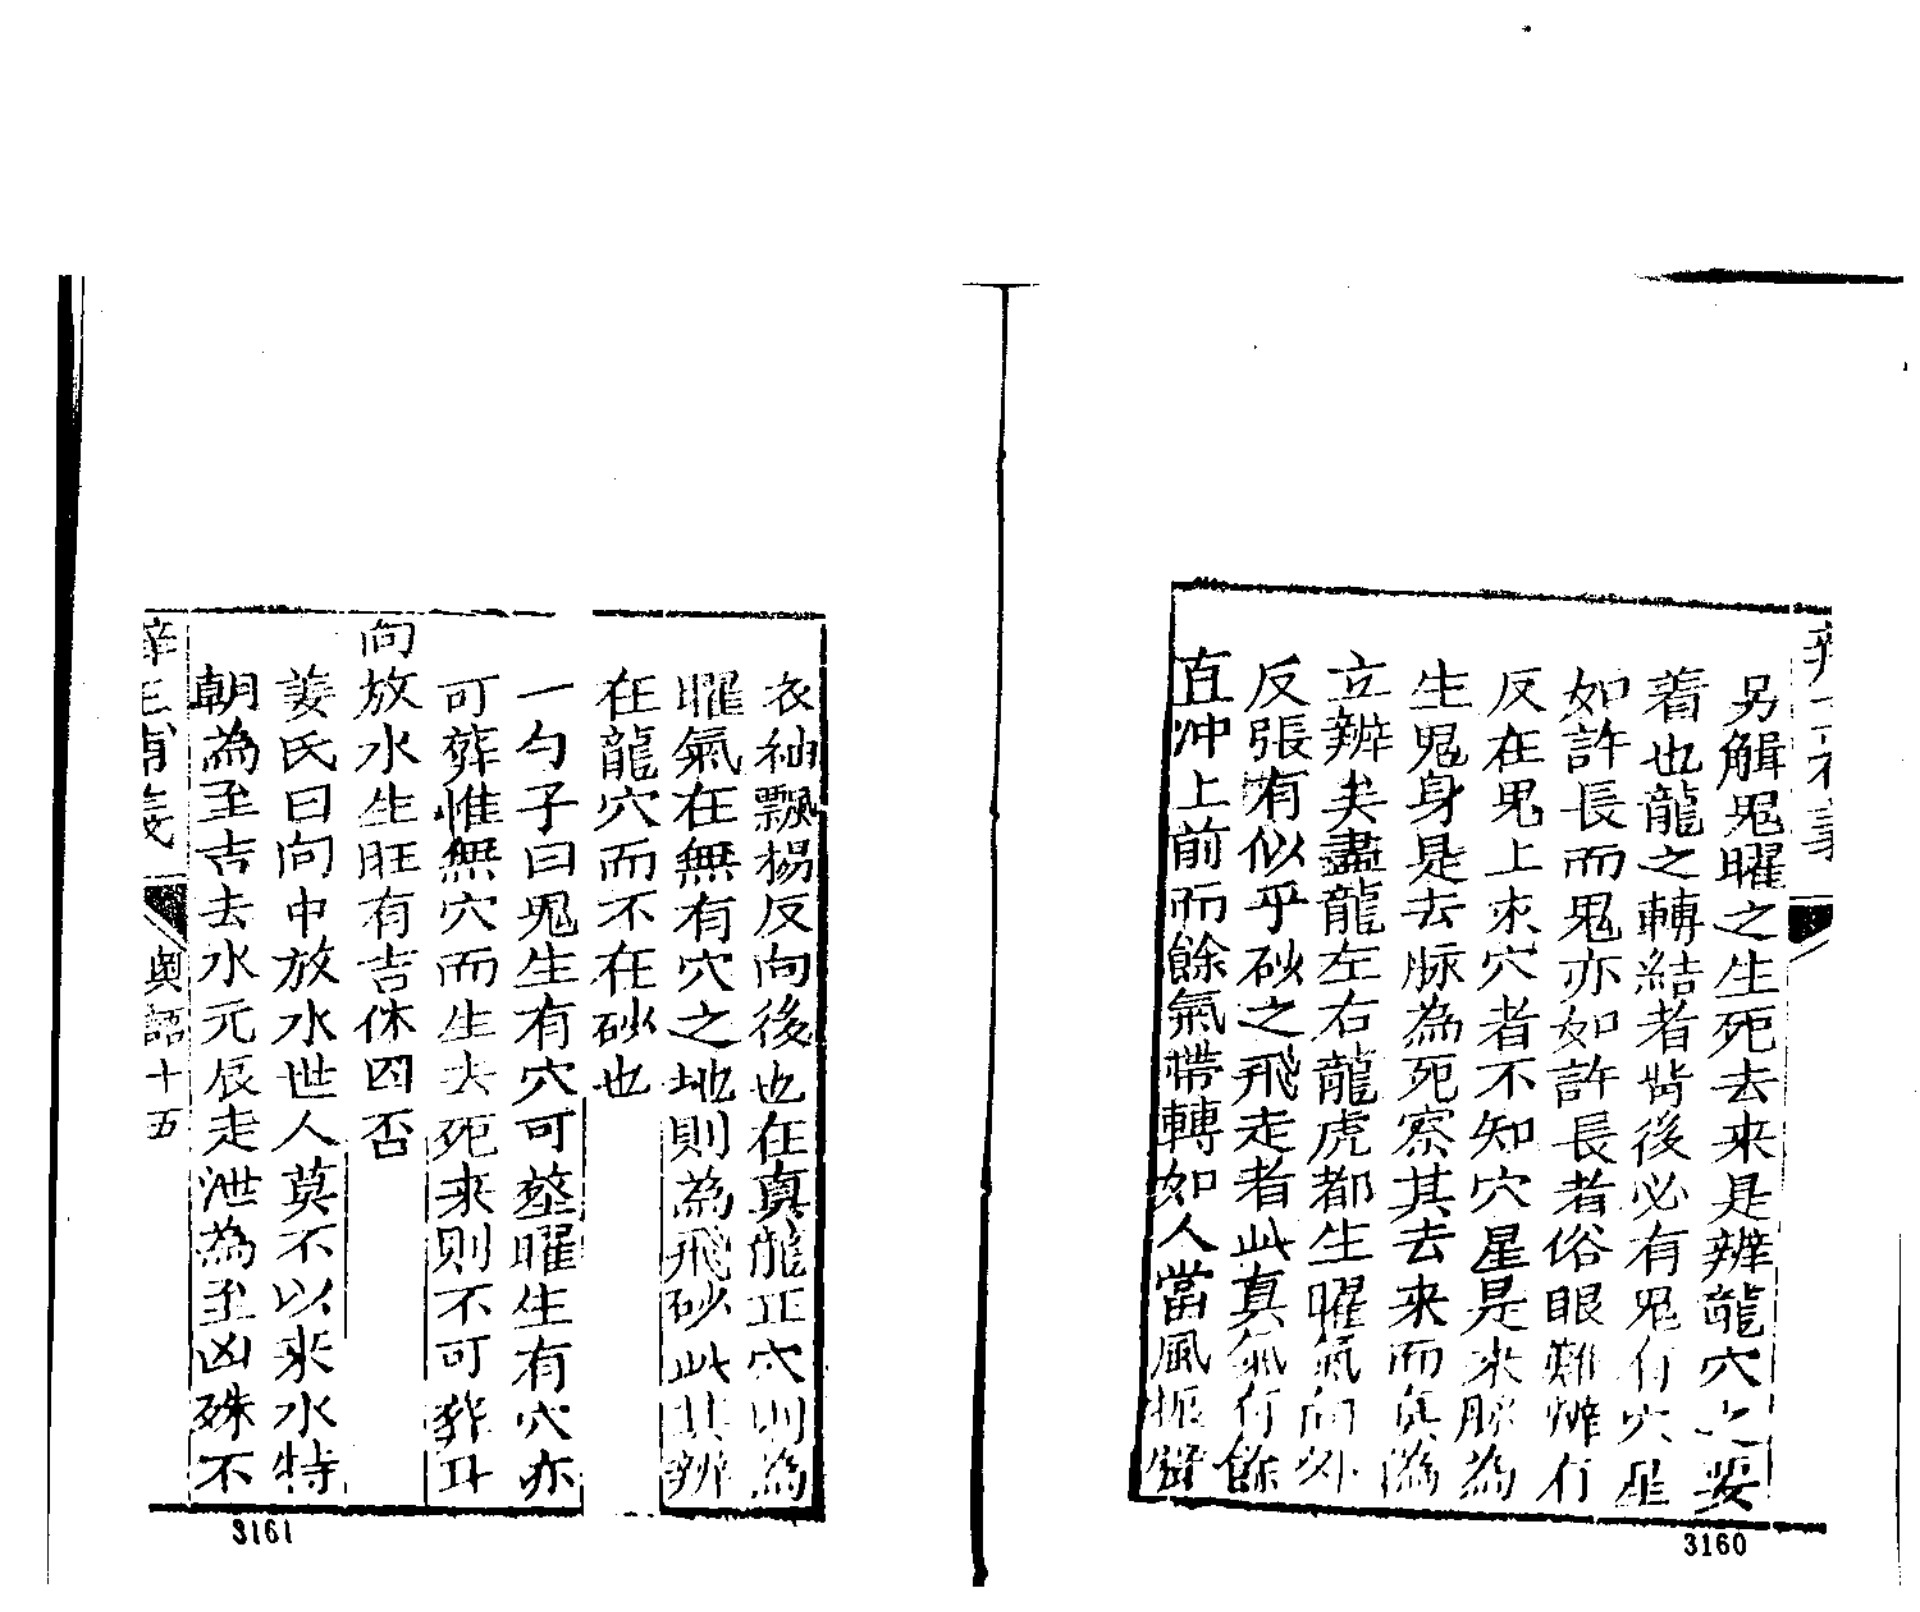 另觧鬼曜之生死去来是辨龍穴之要
着也龍之轉結者背後必有鬼有穴星
如許長而鬼亦如許長者俗眼難辨有
反在鬼上求穴者不知穴星是来脉為
生鬼身是去脉為死察其去来而真偽
立辨矣盡龍左右龍虎都生曜氣向外
反張有似乎砂之飛走者此真氣有餘
直冲上前而餘氣帶轉如人當風振臂
3160
衣袖飄揚反向後也在真龍正穴則為
曜氣在無有穴之地則為飛砂此其辨
在龍穴而不在砂也
一勺子曰鬼生有穴可塟曜生有穴亦
可葬惟無穴而生去死来則不可葬耳
向放水生旺有吉休囚否
姜氏曰向中放水世人莫不以来水特
朝為至吉去水元辰走泄為至凶殊不
奥語十五
3161